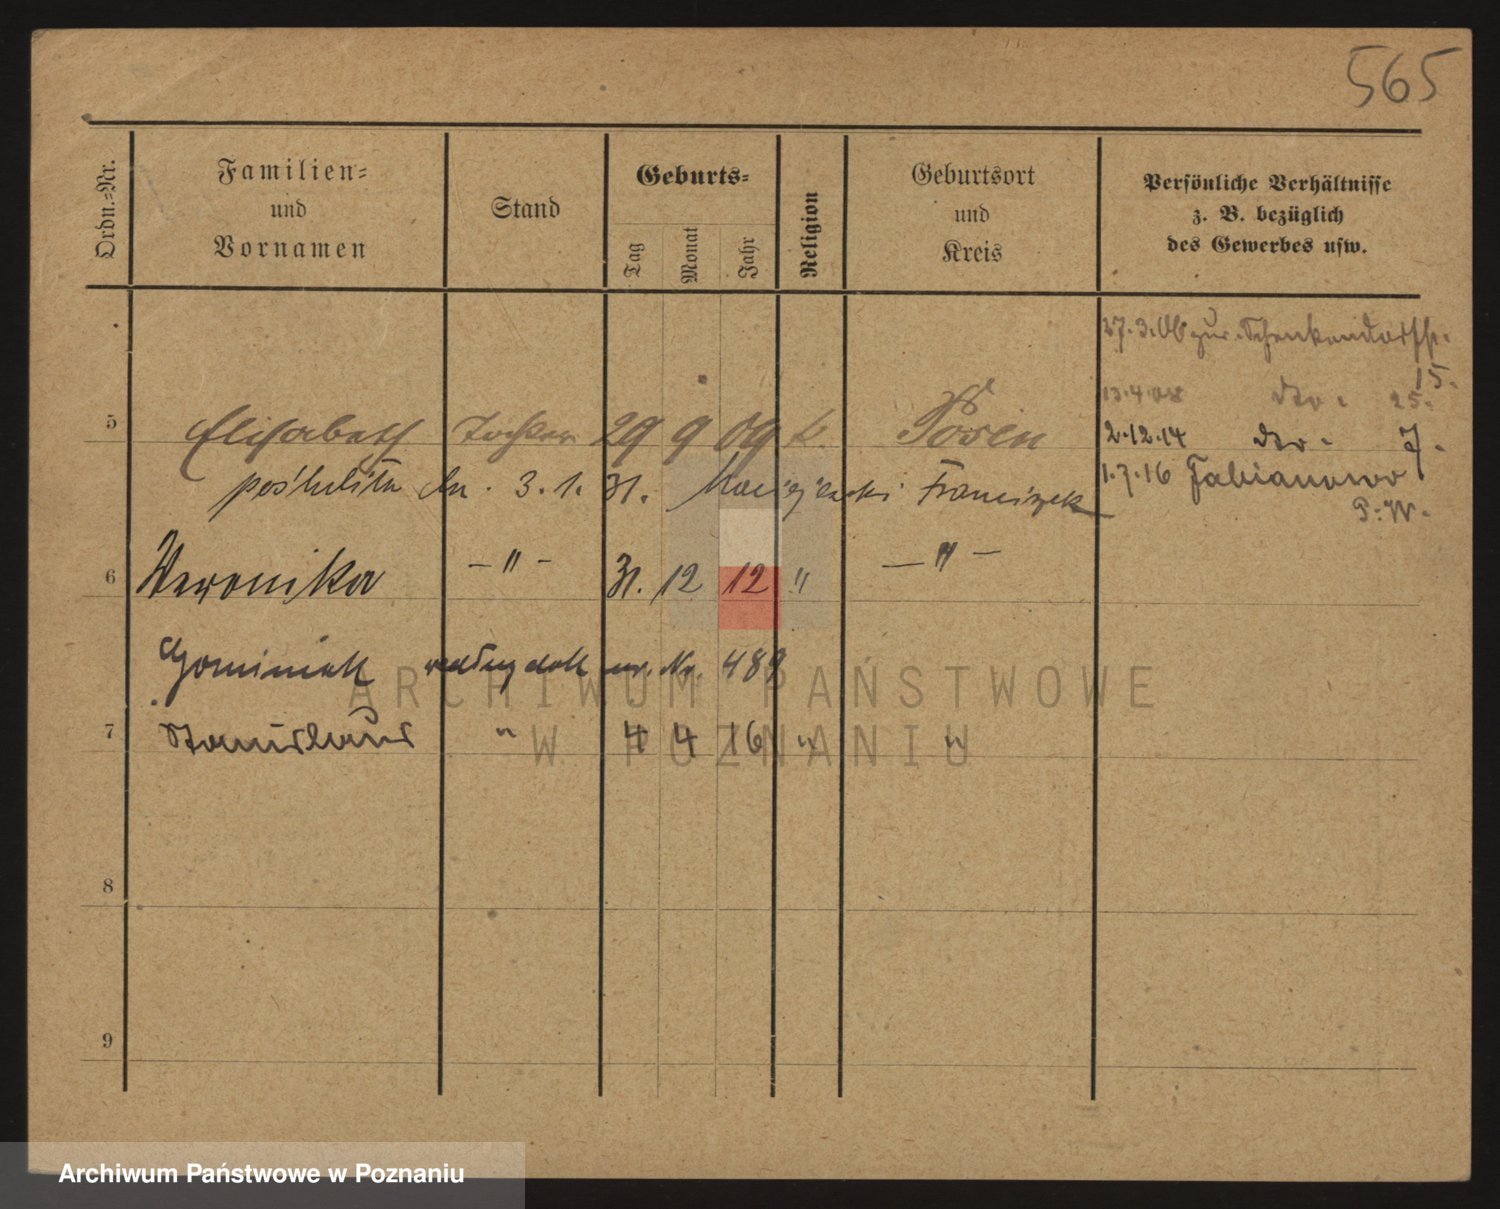 565
Ordn.-Nr.
Familien-
und
Vornamen
Stand
Geburts-
Tag
Monat
Jahr
Religion
Geburtsort
und
Kreis
Persönliche Verhältnisse
z. B. bezüglich
des Gewerbes usw.
27.3.
15.
5 Elisabeth Tochter 29 9 09 k. Posen
13.4. dto. 25.
2.12.14 dto. 7.
poślubiła dn. 3.1.31. Franciszek
1.7.16 Fabianowo
P.W.
6 Weronika -"- 31. 12 12 " -"-
według dok Nr. 489
7 Stanislaus " 4 4 16 " "
8
9
ARCHIWUM PAŃSTWOWE
W POZNANIU
Archiwum Państwowe w Poznaniu